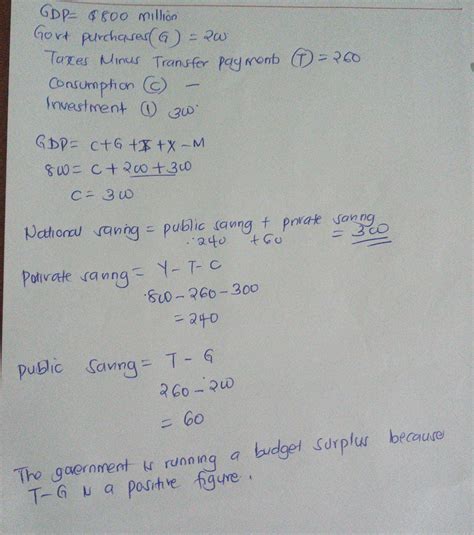 GDP= $800 million
Govt purchases(G) = 200
Taxes Minus Transfer payments (T) = 260
Consumption (C) —
Investment (I) 300
GDP= C+G+I+X-M
800= C+200+300
C= 300
National saving = public saving + private saving
240 +60 = 300
Private saving= Y-T-C
800-260-300
=240
public saving= T-G
260-200
= 60
The government is running a budget surplus because
T-G is a positive figure.